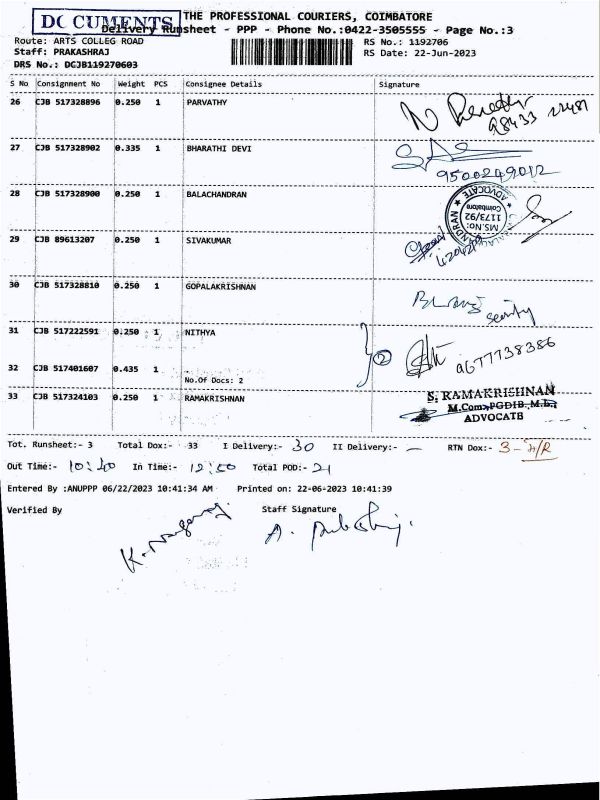 DOCUMENTS THE PROFESSIONAL COURIERS, COIMBATORE
Delivery Runsheet - PPP - Phone No.:0422-3505555 - Page No.:3
Route: ARTS COLLEG ROAD RS No.: 1192706
Staff: PRAKASHRAJ RS Date: 22-Jun-2023
DRS No.: DCJB119270603
S No Consignment No Weight PCS Consignee Details Signature
26 CJB 517328896 0.250 1 PARVATHY
98433
27 CJB 517328902 0.335 1 BHARATHI DEVI
9500249012
28 CJB 517328900 0.250 1 BALACHANDRAN
ADVOCATE
Coimbatore
MS.No:
1173/92
29 CJB 89613207 0.250 1 SIVAKUMAR
30 CJB 517328810 0.250 1 GOPALAKRISHNAN
31 CJB 517222591 0.250 1 NITHYA
2 9677738386
32 CJB 517401607 0.435 1
No.Of Docs: 2
33 CJB 517324103 0.250 1 RAMAKRISHNAN
S. RAMAKRISHNAN
M.Com., PGDIB., M.L.,
ADVOCATE
Tot. Runsheet:- 3 Total Dox:- 33 I Delivery:- 30 II Delivery:- - RTN Dox:- 3 -
Out Time:- 10:40 In Time:- 12:50 Total POD:- 21
Entered By :ANUPPP 06/22/2023 10:41:34 AM Printed on: 22-06-2023 10:41:39
Verified By Staff Signature